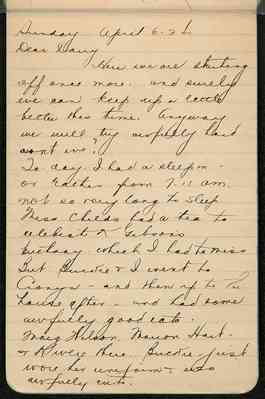 Sunday April 6-26
Dear Dairy
Here we are starting
off once more. and surely
we can keep up a little
better this time. Anyway
we will try awfully hard
wont we?
To-day I had a sleep in -
or rather from 7-11 am.
not so very long to sleep
Miss Childs had a tea to
celebrate
birthday which I had to miss
But Burdie & I went to
- and then up to the
house after - and had some
awfully good eats.
Mary Wilson, Marion Hart
were there. Burdie just
wore her uniform & was
awfully cute.